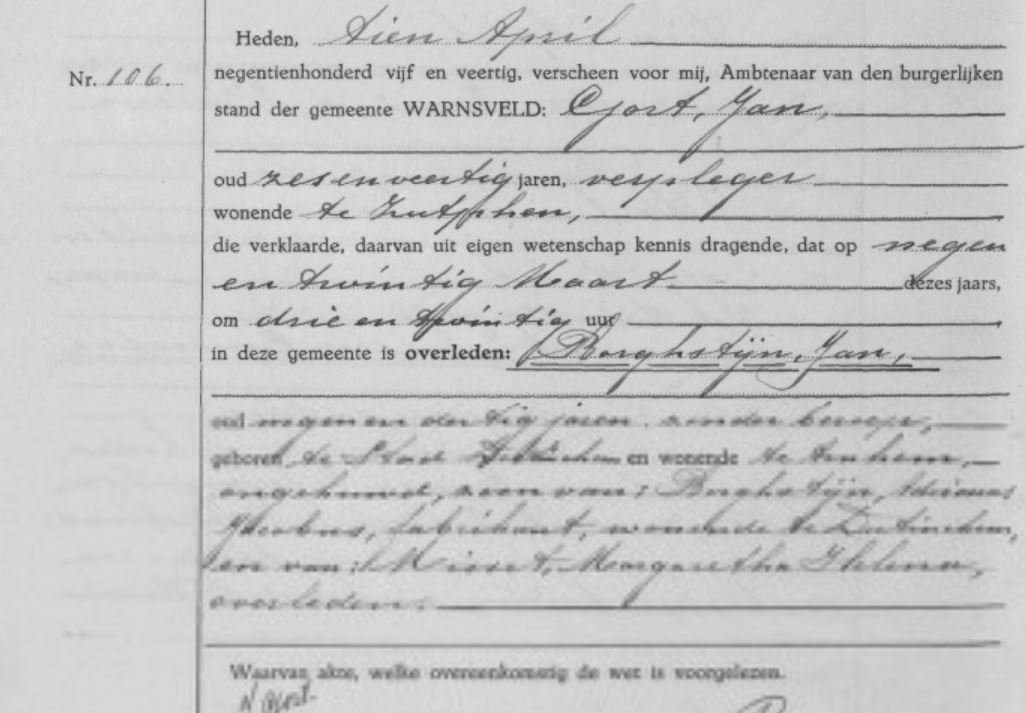 Heden, tien April
Nr. 106. negentienhonderd vijf en veertig, verscheen voor mij, Ambtenaar van den burgerlijken
stand der gemeente WARNSVELD: Gort, Jan,
oud zesenveertig jaren, verpleger
wonende te Zutphen,
die verklaarde, daarvan uit eigen wetenschap kennis dragende, dat op negen
en twintig Maart dezes jaars,
om drie en twintig uur
in deze gemeente is overleden: Borghstijn, Jan,
oud negen en dertig jaren zonder beroep,
geboren te Stad en wonende te Arnhem,
ongehuwd, zoon van: Borghstijn, Adrianus
Jacobus, fabrikant, wonende te Doetinchem,
en van: Misset, Margaretha Helena,
overleden.
Waarvan akte, welke overeenkomstig de wet is voorgelezen.